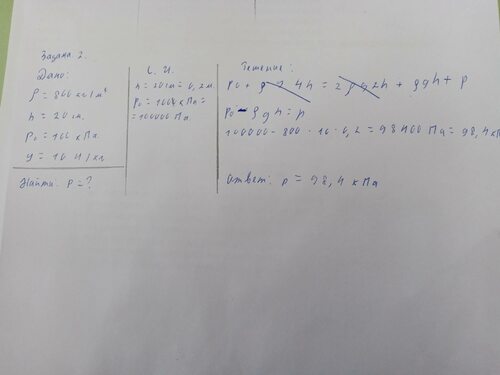 Задача 2.
Дано:
ρ = 800 кг/м³
h = 20 см.
P₀ = 100 кПа
g = 10 Н/кг
Найти: p = ?
С. И.
h = 20 см = 0,2 м.
P₀ = 100 кПа =
= 100000 Па
Решение:
P₀ + ρg4h = 2ρg2h + ρgh + p
P₀ - ρgh = p
100000 - 800 · 10 · 0,2 = 98400 Па = 98,4 кПа
Ответ: p = 98,4 кПа